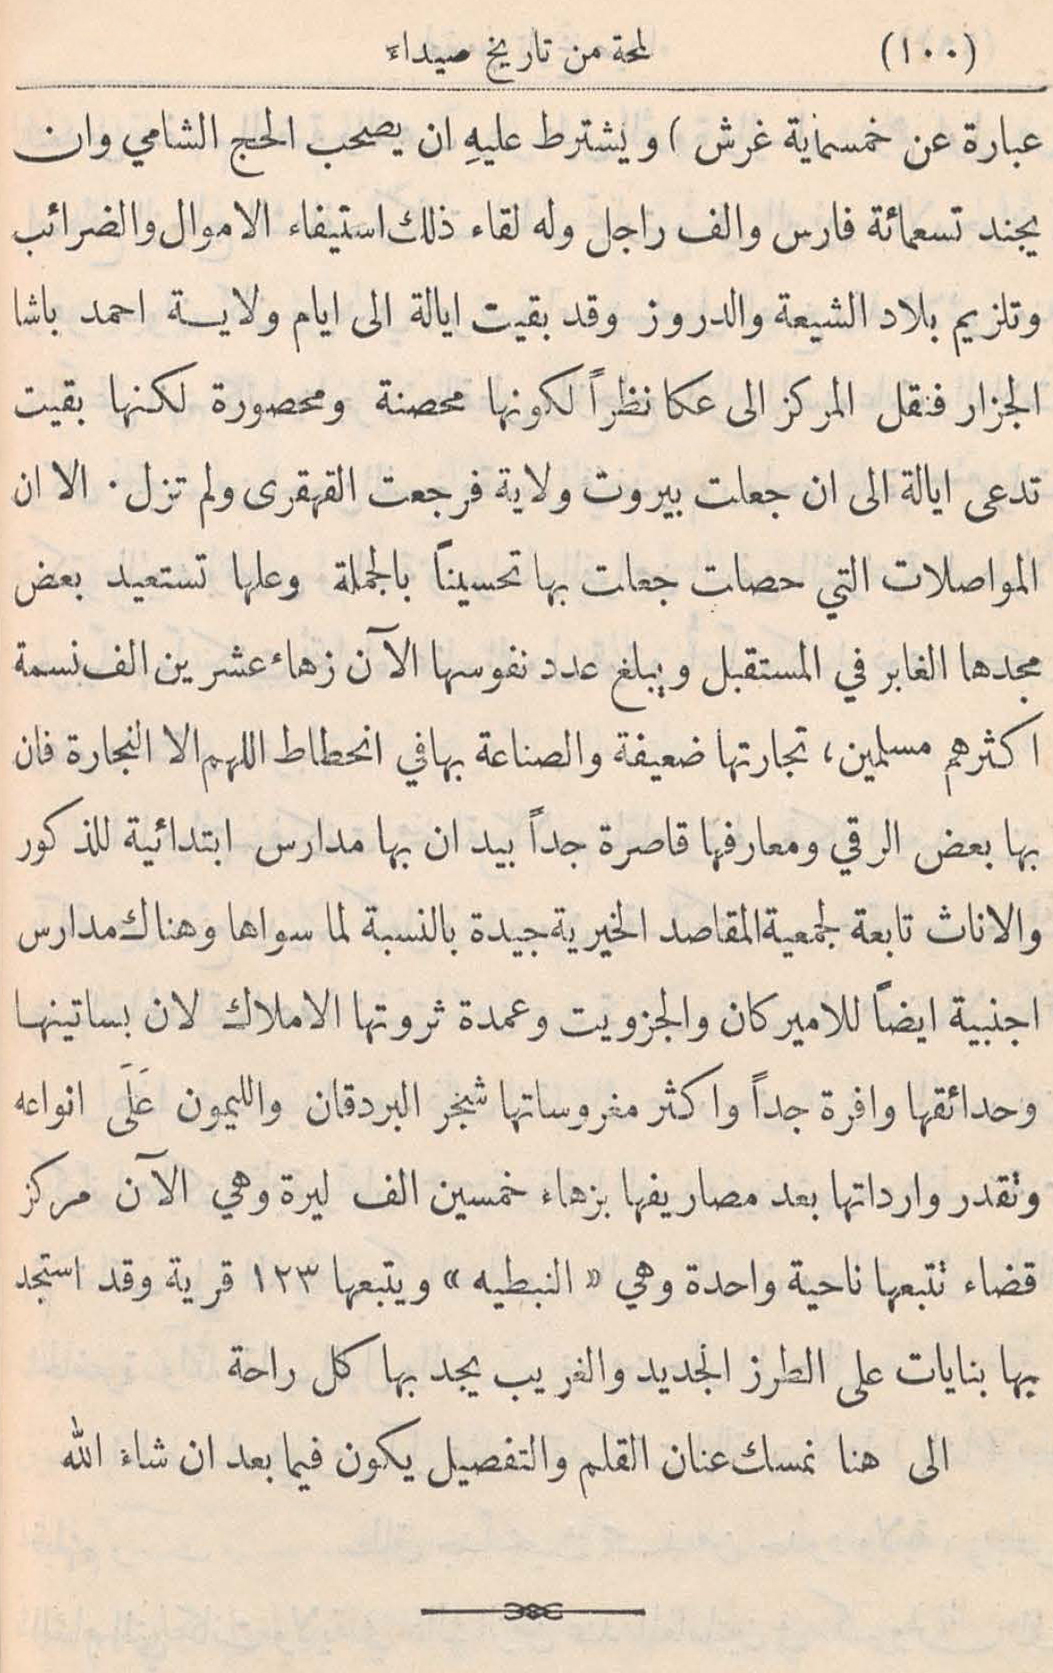 (١٠٠) لمحة من تاريخ صيداء
عبارة عن خمسماية غرش ) ويشترط عليهِ ان يصحب الحج الشامي وان
يجند تسعمائة فارس والف راجل وله لقاء ذلك استيفاء الاموال والضرائب
وتلزيم بلاد الشيعة والدروز وقد بقيت ايالة الى ايام ولايــة احمد باشا
الجزار فنقل المركز الى عكا نظراً لكونها محصنة ومحصورة لكنها بقيت
تدعى ايالة الى ان جعلت بيروت ولاية فرجعت القهقرى ولم تزل ٠ الا ان
المواصلات التي حصلت جعلت بها تحسيناً بالجملة وعلها تستعيد بعض
مجدها الغابر في المستقبل ويبلغ عدد نفوسها الآن زهاء عشرين الف نسمة
اكثرهم مسلمين، تجارتها ضعيفة والصناعة بها في انحطاط اللهم الا النجارة فان
بها بعض الرقي ومعارفها قاصرة جداً بيد ان بها مدارس ابتدائية للذكور
والاناث تابعة لجمعية المقاصد الخيرية جيدة بالنسبة لما سواها وهناك مدارس
اجنبية ايضاً للاميركان والجزويت وعمدة ثروتها الاملاك لان بساتينهـا
وحدائقها وافرة جداً واكثر مغروساتها شجر البردقان والليمون عَلَى انواعه
وتقدر وارداتها بعد مصاريفها بزهاء خمسين الف ليرة وهي الآن مركز
قضاء تتبعها ناحية واحدة وهي « النبطيه » ويتبعها ١٢٣ قرية وقد استجد
بها بنايات على الطرز الجديد والغريب يجد بها كل راحة
الى هنا نمسك عنان القلم والتفصيل يكون فيما بعد ان شاء الله